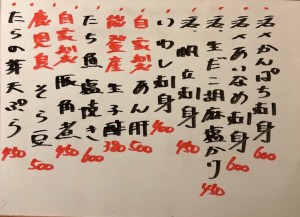 活〆かんぱち刺身 600
活〆あいなめ刺身 600
活〆生だこ胡麻塩かり 450
活〆帆立刺身 450
いわし刺身 400
自家製あん肝 500
能登産生子酢 380
たち魚塩焼き 600
自家製豚角煮 450
鹿児島そら豆 500
たらの芽天ぷら 450